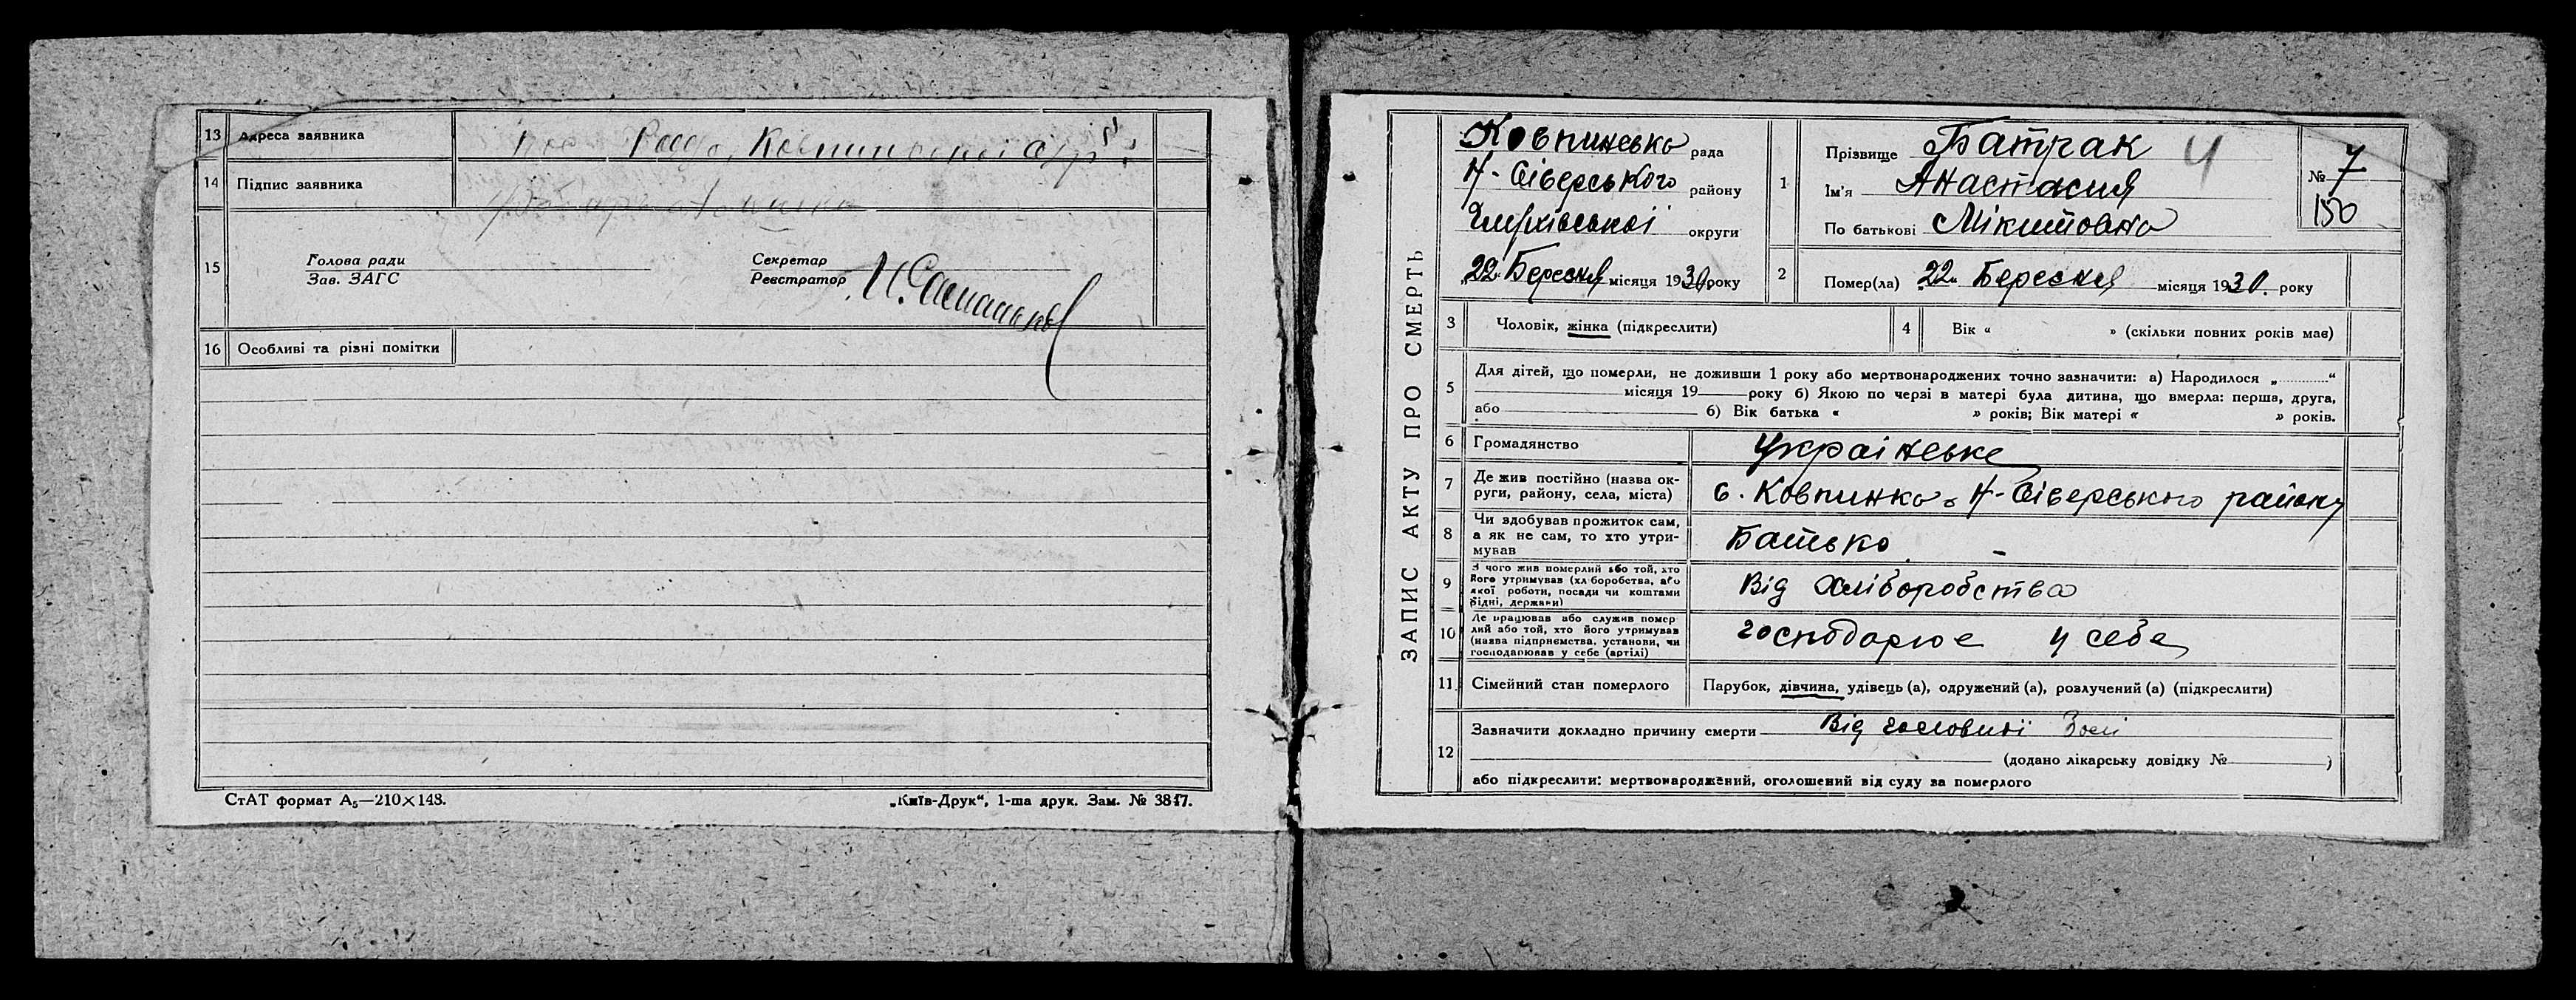 13 Адреса заявника Рада, Ковпинської с/р
14 Підпис заявника
15 Голова ради
Зав. ЗАГС
Секретар
Реєстратор
16 Особливі та різні помітки
СтАТ формат А₅—210×148.
„Київ-Друк“, 1-ша друк. Зам. № 3817.
ЗАПИС АКТУ ПРО СМЕРТЬ
Ковпинська рада
Н-Сіверського району
округи
„22“ Березня місяця 1930 року
1 Прізвище Батрак 4
Ім'я Анастасия
По батькові Мікитовна
№ 7
150
2 Помер(ла) „22“ Березня місяця 1930. року
3 Чоловік, жінка (підкреслити)
4 Вік « » (скільки повних років мав)
5 Для дітей, що померли, не доживши 1 року або мертвонароджених точно зазначити: а) Народилося „..........“
місяця 19 року б) Якою по черзі в матері була дитина, що вмерла: перша, друга,
або б) Вік батька « » років; Вік матері « » років.
6 Громадянство Українське
7 Де жив постійно (назва ок-
руги, району, села, міста) с. Ковпинка Н-Сіверського району
8 Чи здобував прожиток сам,
а як не сам, то хто утри-
мував Батько –
9 З чого жив померлий або той, хто
його утримував (хліборобства, або
якої роботи, посади чи коштами
рідні, держави) Від хліборобства
10 Де працював або служив помер-
лий або той, хто його утримував
(назва підприємства, установи, чи
господарював у себе (артілі) господарює у себе
11 Сімейний стан померлого Парубок, дівчина, удівець (а), одружений (а), розлучений (а) (підкреслити)
12 Зазначити докладно причину смерти Від головної
(додано лікарську довідку № )
або підкреслити: мертвонароджений, оголошений від суду за померлого